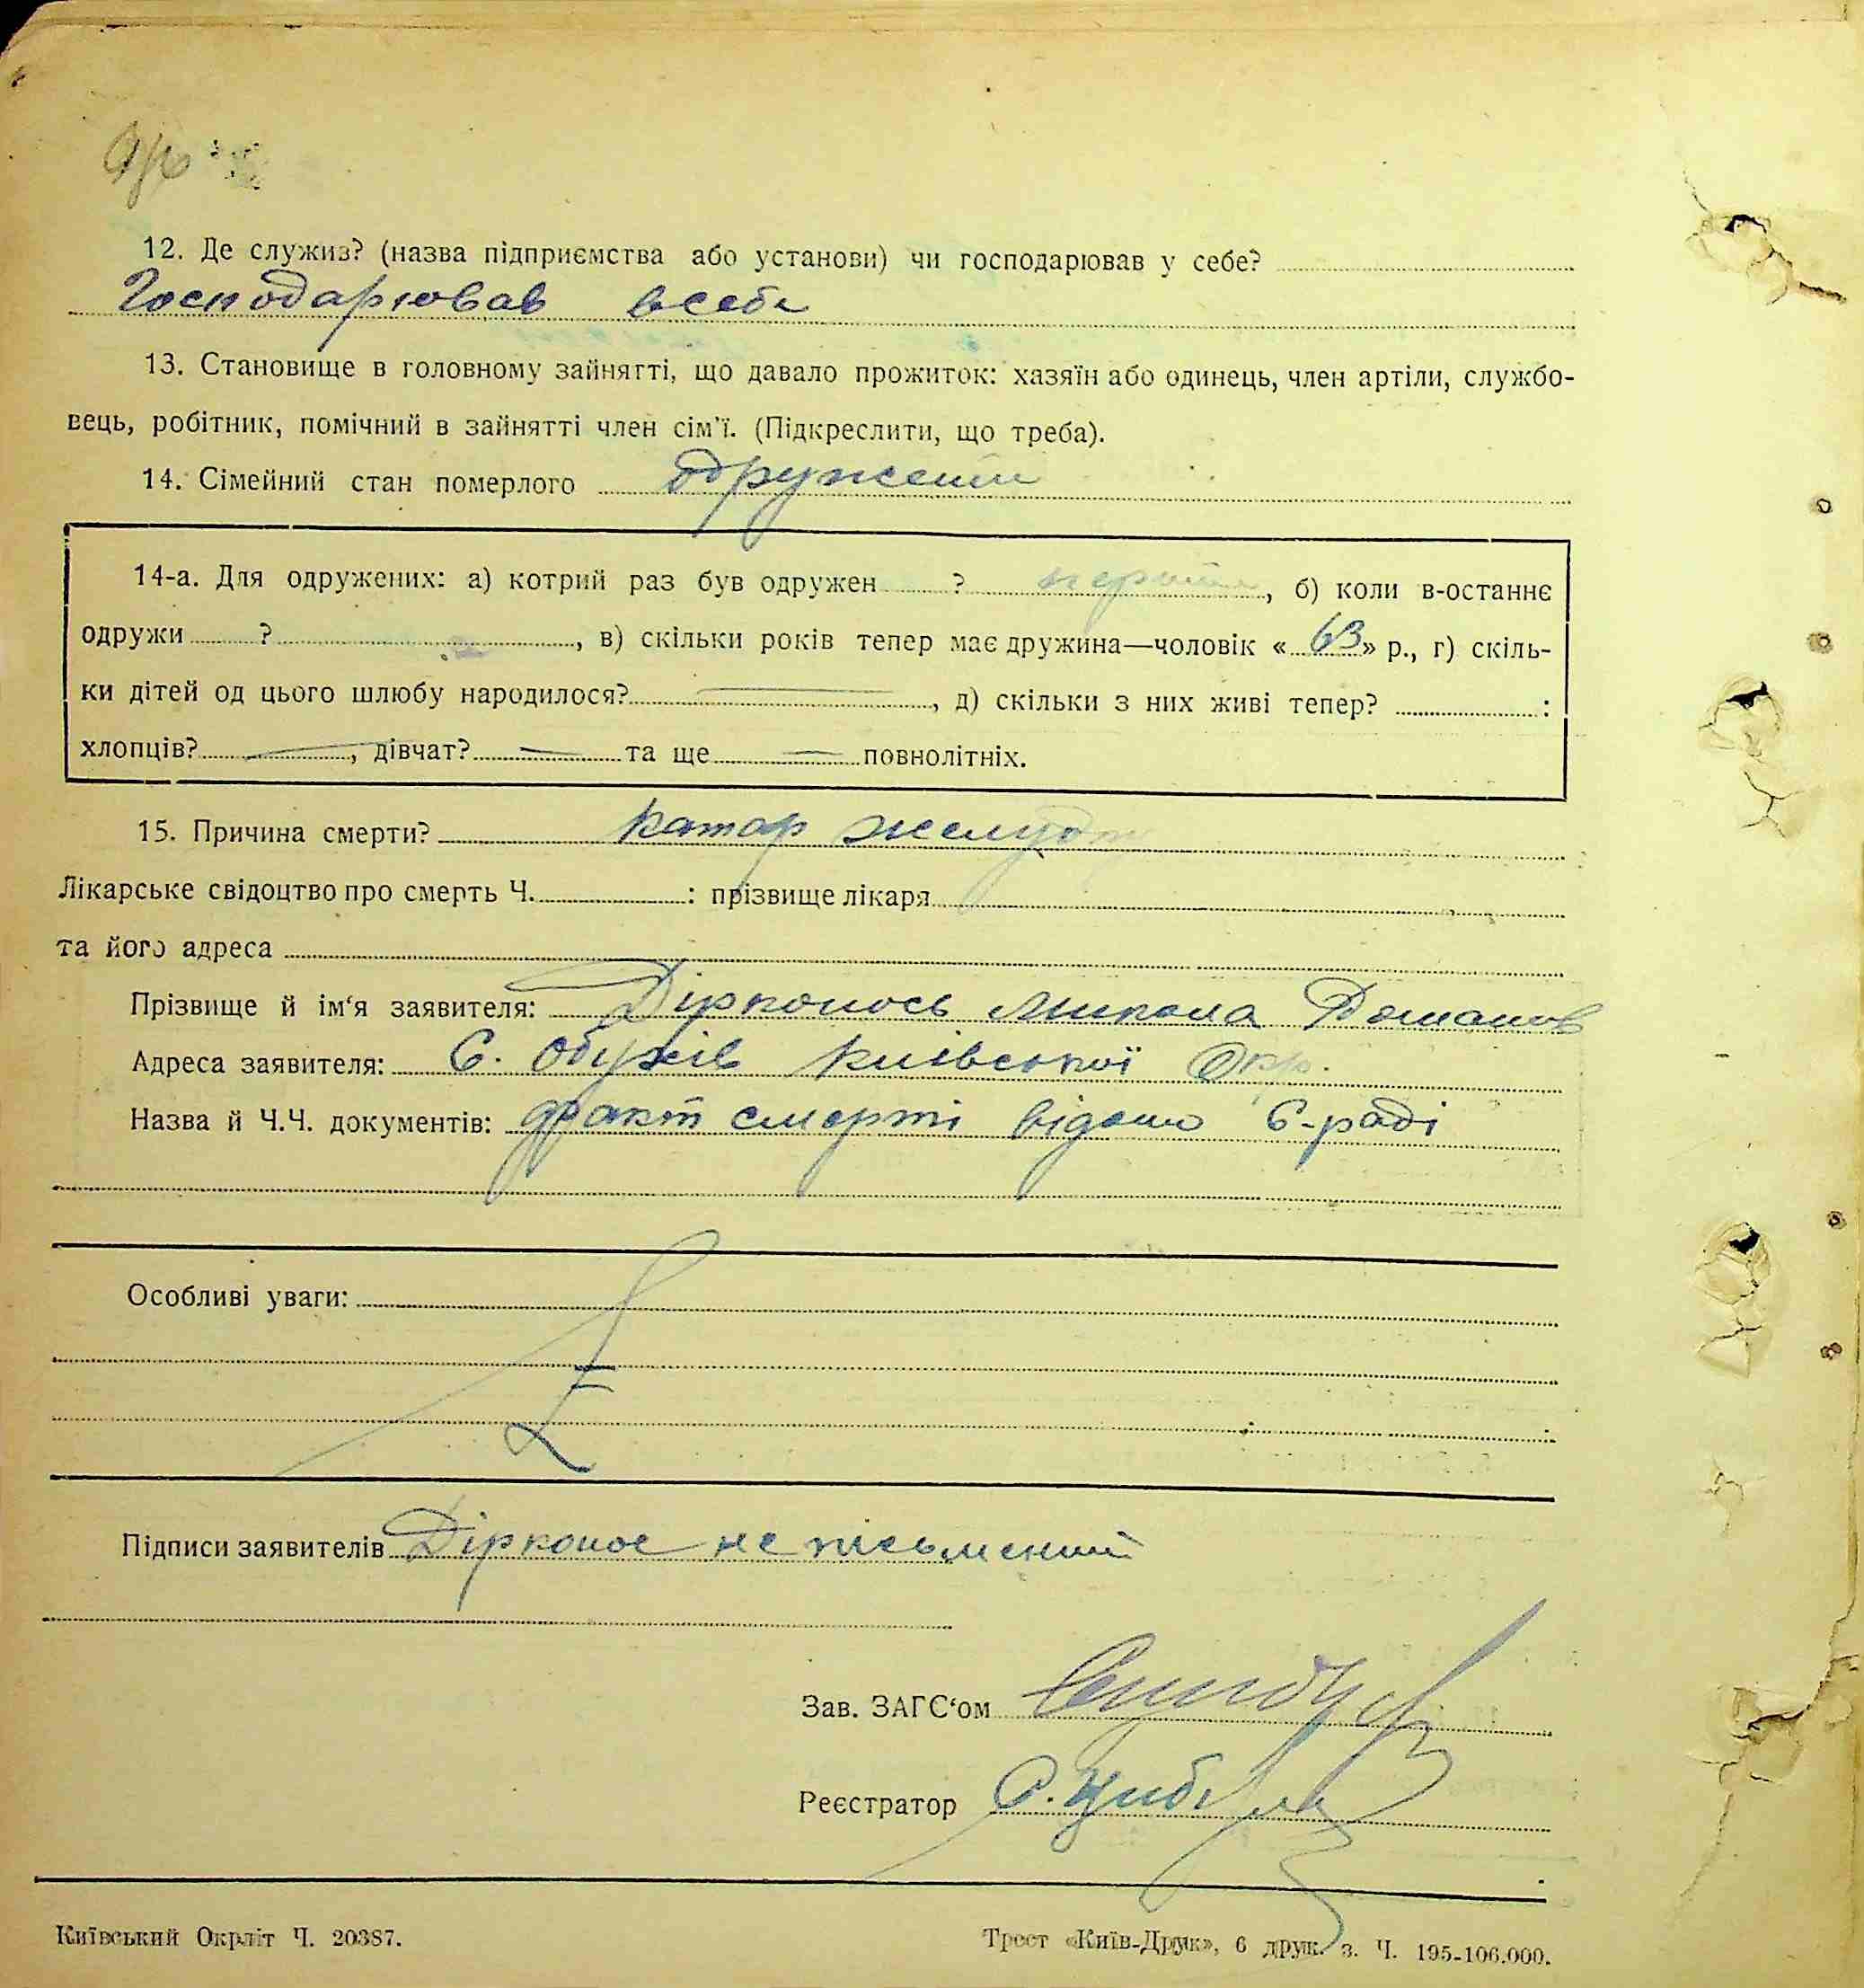 12. Де служив? (назва підприємства або установи) чи господарював у себе?
Господарював всебе
13. Становище в головному зайнятті, що давало прожиток: хазяїн або одинець, член артіли, службо-
вець, робітник, помічний в зайнятті член сім'ї. (Підкреслити, що треба).
14. Сімейний стан померлого одружений
14-а. Для одружених: а) котрий раз був одружен ? перший, б) коли в-останнє
одружи ? , в) скільки років тепер має дружина—чоловік «63» р., г) скіль-
ки дітей од цього шлюбу народилося? —, д) скільки з них живі тепер? :
хлопців? —, дівчат? — та ще — повнолітніх.
15. Причина смерти? катар желудка
Лікарське свідоцтво про смерть Ч. : прізвище лікаря
та його адреса
Прізвище й ім‘я заявителя: Дірконось Микола
Адреса заявителя: С. Обухів Київської Окр.
Назва й Ч.Ч. документів: факт смерті відомо С-раді
Особливі уваги:
Підписи заявителів Дірконос не письмений
Зав. ЗАГС‘ом
Реєстратор
Київський Окрліт Ч. 20387.
Трест «Київ-Друк», 6 друк. з. Ч. 195-106.000.